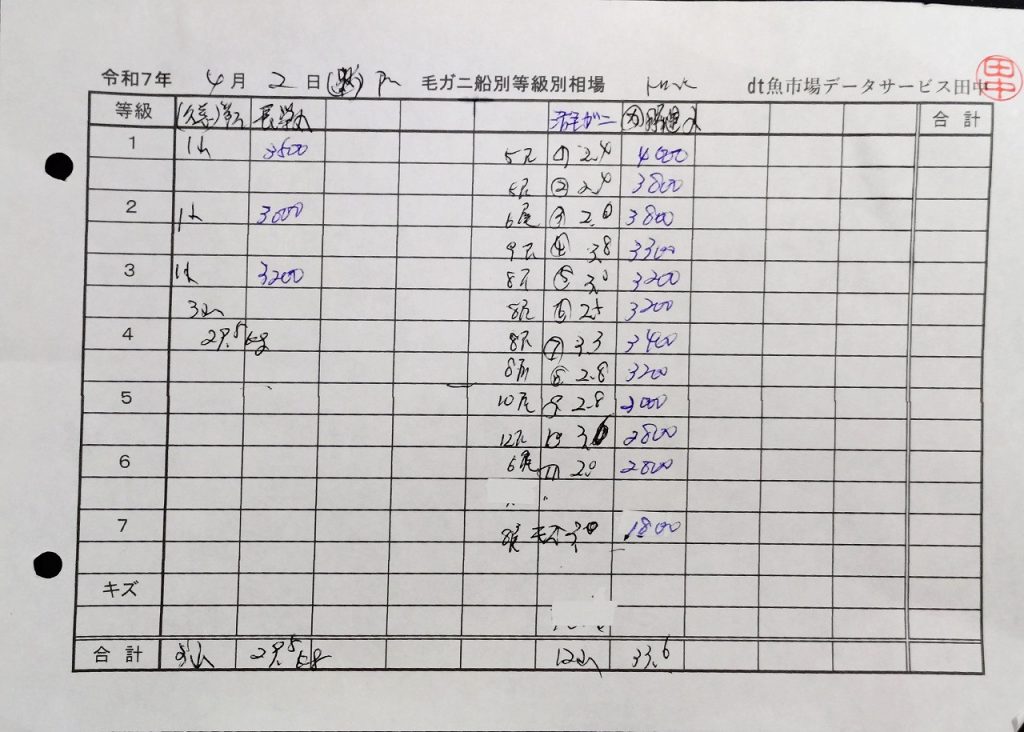 令和7年 4月 2日 毛ガニ船別等級別相場 dt魚市場データサービス田中
田中
等級 活毛ガニ 合計
1 3500 5尾 ① 2.4 4000
5尾 ② 2.4 3800
2 3000 6尾 ③ 2.0 3800
9尾 ④ 3.8 3300
3 3200 8尾 ⑤ 3.0 3200
3山 8尾 ⑥ 2.5 3200
4 29.5kg 8尾 ⑦ 3.3 3400
8尾 ⑧ 2.8 3200
5 10尾 ⑨ 2.8 3000
12尾 2800
6 6尾 ⑪ 2.0 2800
7 8尾 1800
キズ
合計 3山 29.5kg 12山 33.6